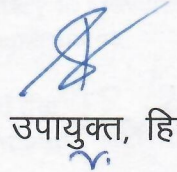 उपायुक्त, हि